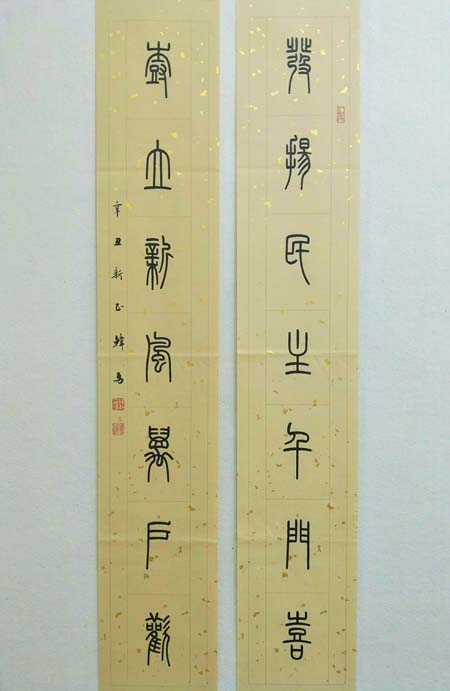 發揚民主千門喜
樹立新風萬戶歡
辛丑新正